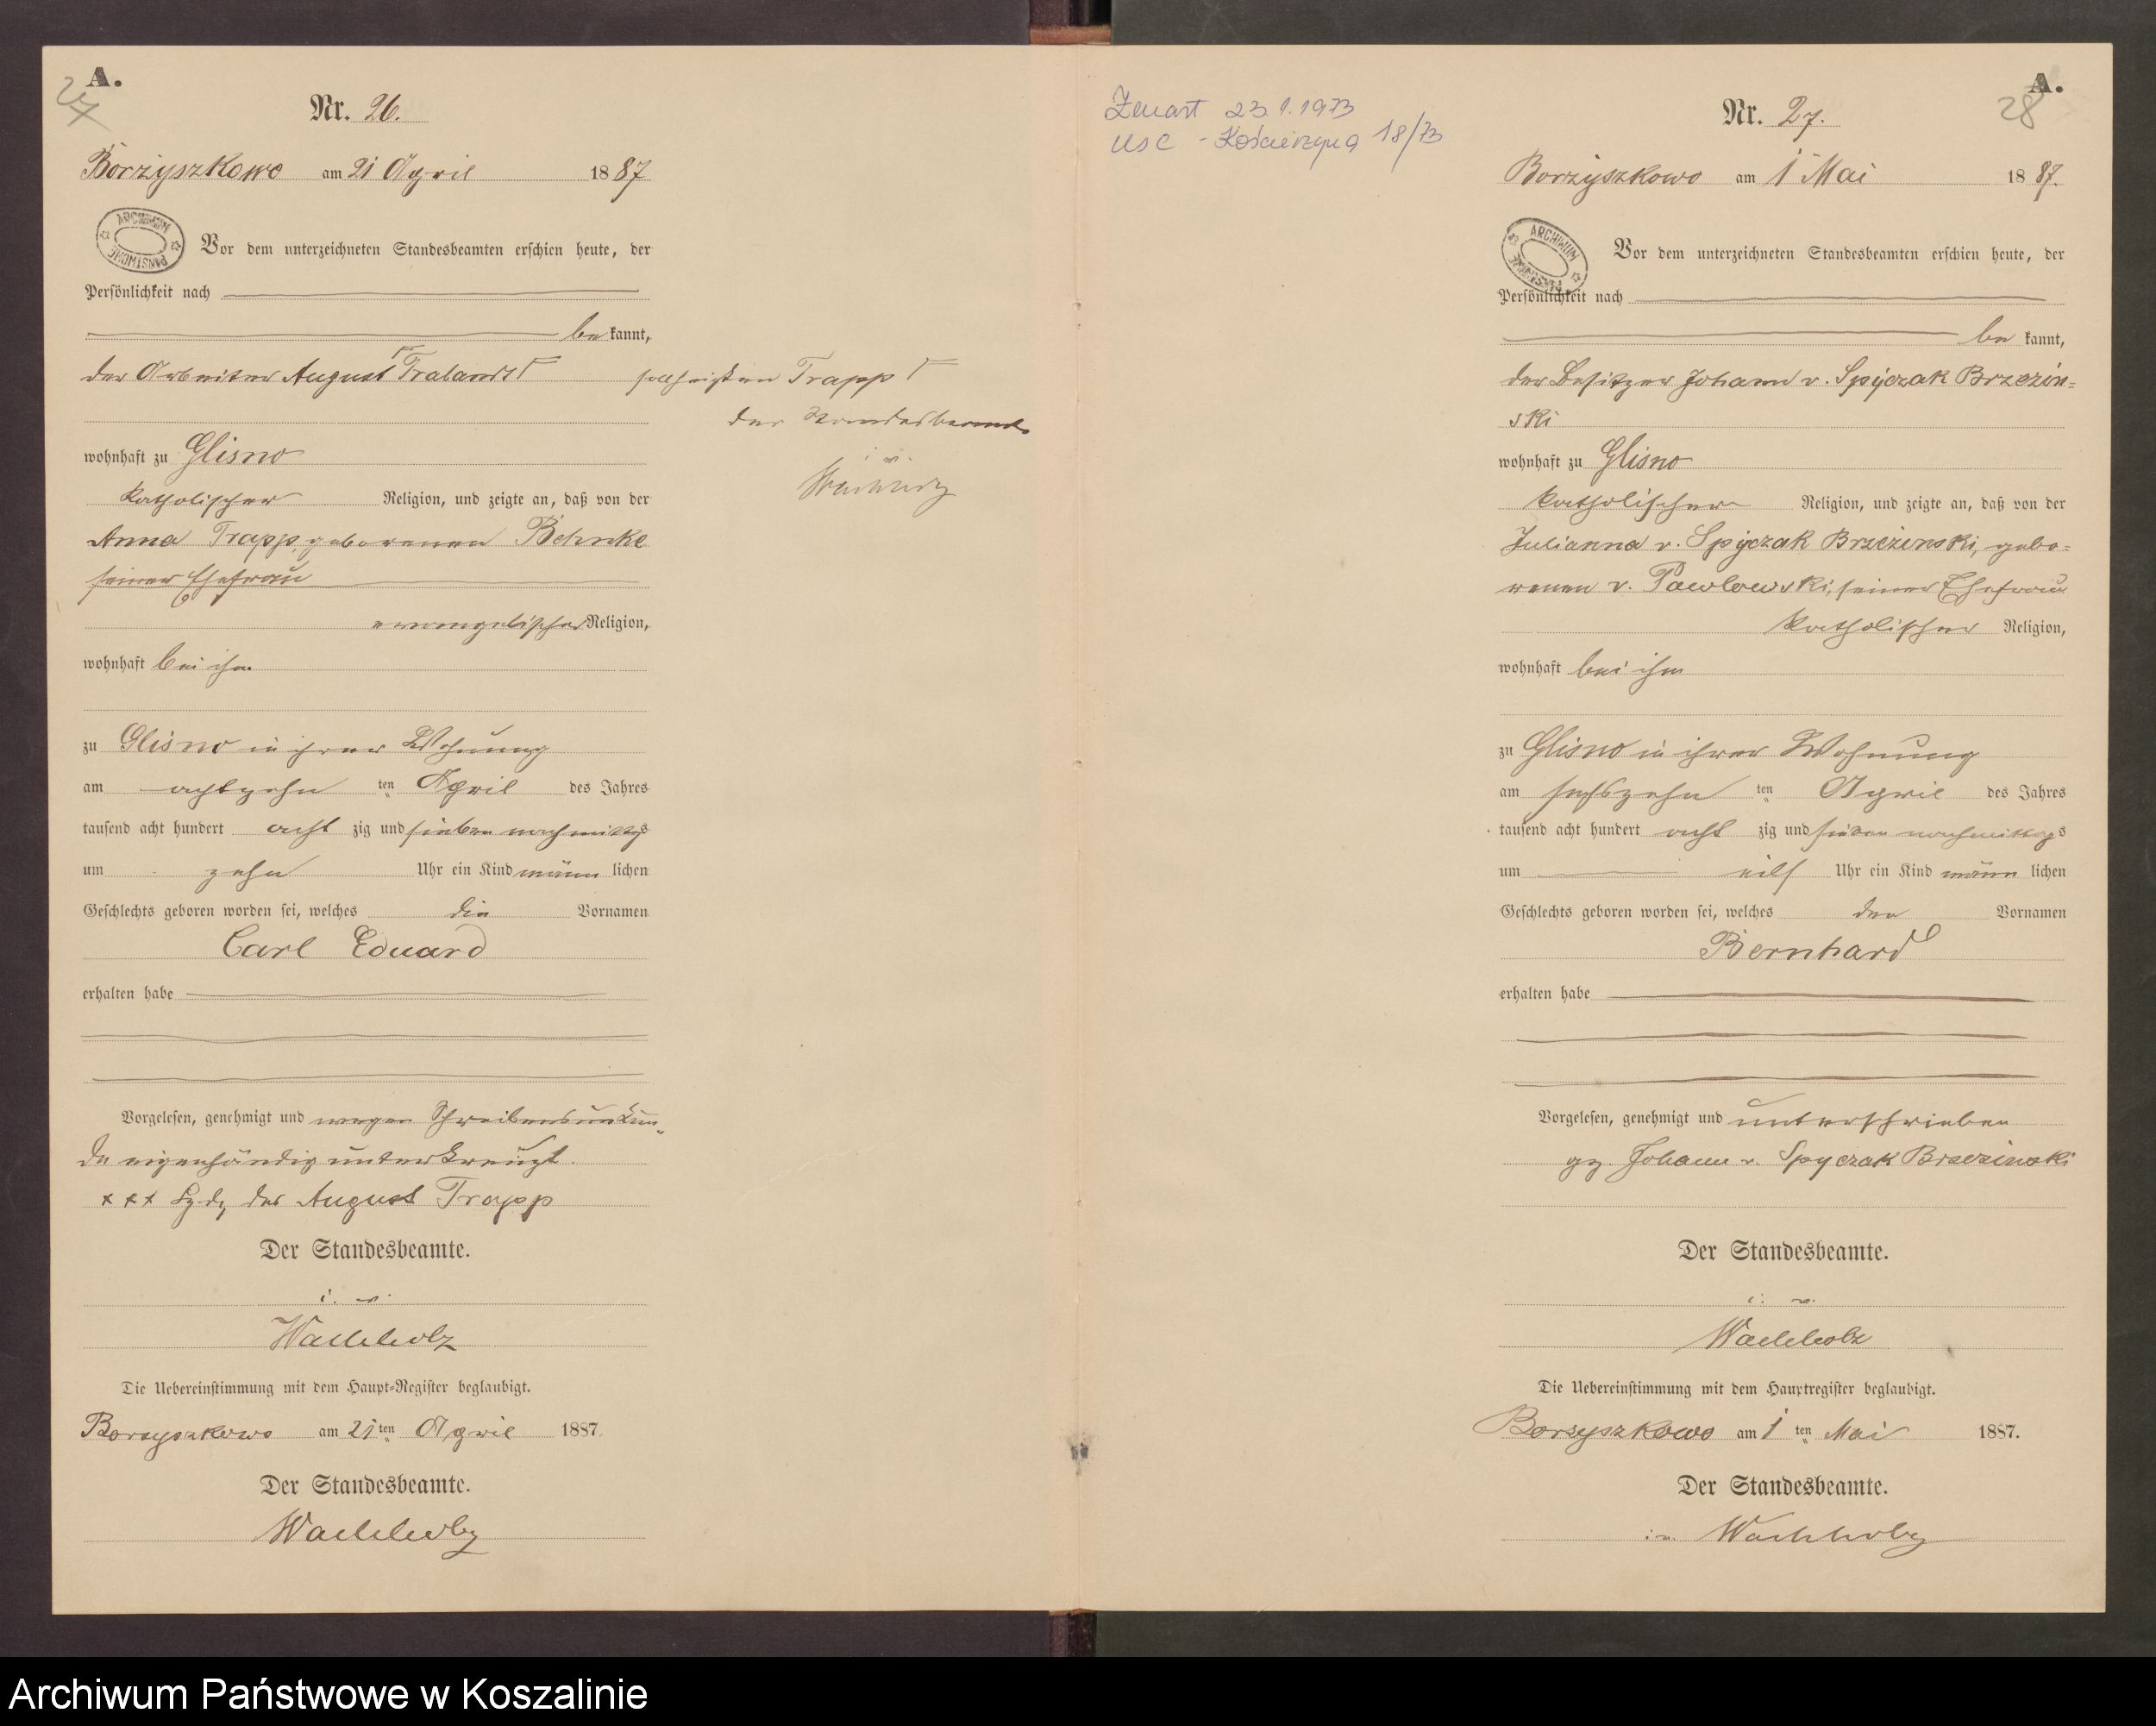 A.
27
Nr. 26.
Borzyszkowo am 21 April 1887
ARCHIWUM PAŃSTWOWE
Vor dem unterzeichneten Standesbeamten erschien heute, der
Persönlichkeit nach
be kannt,
der Arbeiter August
soll heißen Trapp
der Standesbeamte
wohnhaft zu Glisno
i. v.
katholischer Religion, und zeigte an, daß von der
Anna Trapp, geborenen Behnke
seiner Ehefrau
evangelischer Religion,
wohnhaft bei ihm
zu Glisno in ihrer Wohnung
am achtzehn ten April des Jahres
tausend acht hundert acht zig und sieben nachmittags
um zehn Uhr ein Kind männ lichen
Geschlechts geboren worden sei, welches die Vornamen
Carl Eduard
erhalten habe
Vorgelesen, genehmigt und wegen Schreibensunkun-
de eigenhändig unterkreuzt.
+++ Hzch. des August Trapp
Der Standesbeamte.
i. v.
Wachholz
Die Uebereinstimmung mit dem Haupt-Register beglaubigt.
Borzyszkowo am 21 ten April 1887.
Der Standesbeamte.
Wachholz
Zmarł 23.1.1973
USC - Kościerzyna 18/73
A.
28
Nr. 27.
Borzyszkowo am 1 Mai 1887.
ARCHIWUM PAŃSTWOWE
Vor dem unterzeichneten Standesbeamten erschien heute, der
Persönlichkeit nach
be kannt,
der Besitzer Johann v. Spiczak Brzezin=
ski
wohnhaft zu Glisno
katholischer Religion, und zeigte an, daß von der
Julianna v. Spiczak Brzezinski, gebo=
renen v. Pawlowski, seiner Ehefrau
katholischer Religion,
wohnhaft bei ihm
zu Glisno in ihrer Wohnung
am sechszehn ten April des Jahres
tausend acht hundert acht zig und sieben nachmittags
um eilf Uhr ein Kind männ lichen
Geschlechts geboren worden sei, welches den Vornamen
Bernhard
erhalten habe
Vorgelesen, genehmigt und unterschrieben
gz. Johann v. Spyczak Brzezinski
Der Standesbeamte.
i. v.
Wachholz
Die Uebereinstimmung mit dem Hauptregister beglaubigt.
Borzyszkowo am 1 ten Mai 1887.
Der Standesbeamte.
i.v. Wachholz
Archiwum Państwowe w Koszalinie